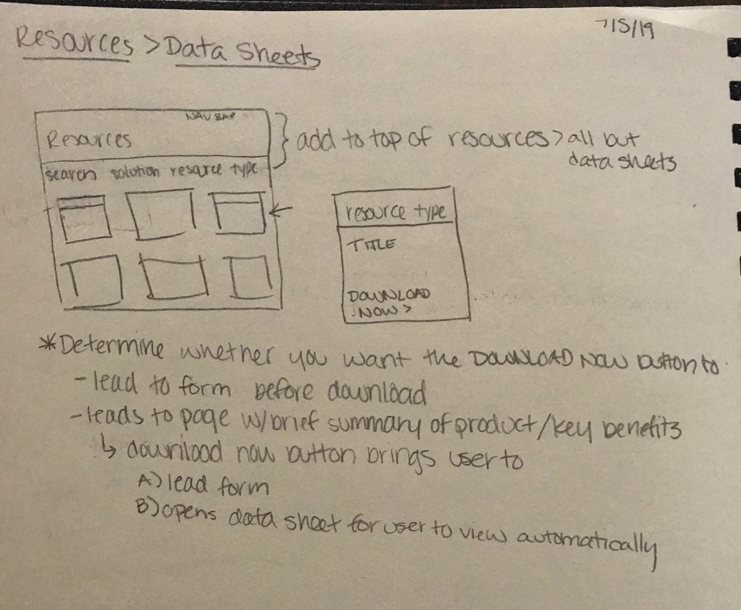 7/5/19
Resources > Data Sheets
NAV BAR
Resources
search solution resource type
add to top of resources > all but
data sheets
resource type
TITLE
DOWNLOAD
NOW >
*Determine whether you want the DOWNLOAD NOW button to:
- lead to form before download
- leads to page w/brief summary of product/key benefits
↳ download now button brings user to
A) lead form
B) opens data sheet for user to view automatically